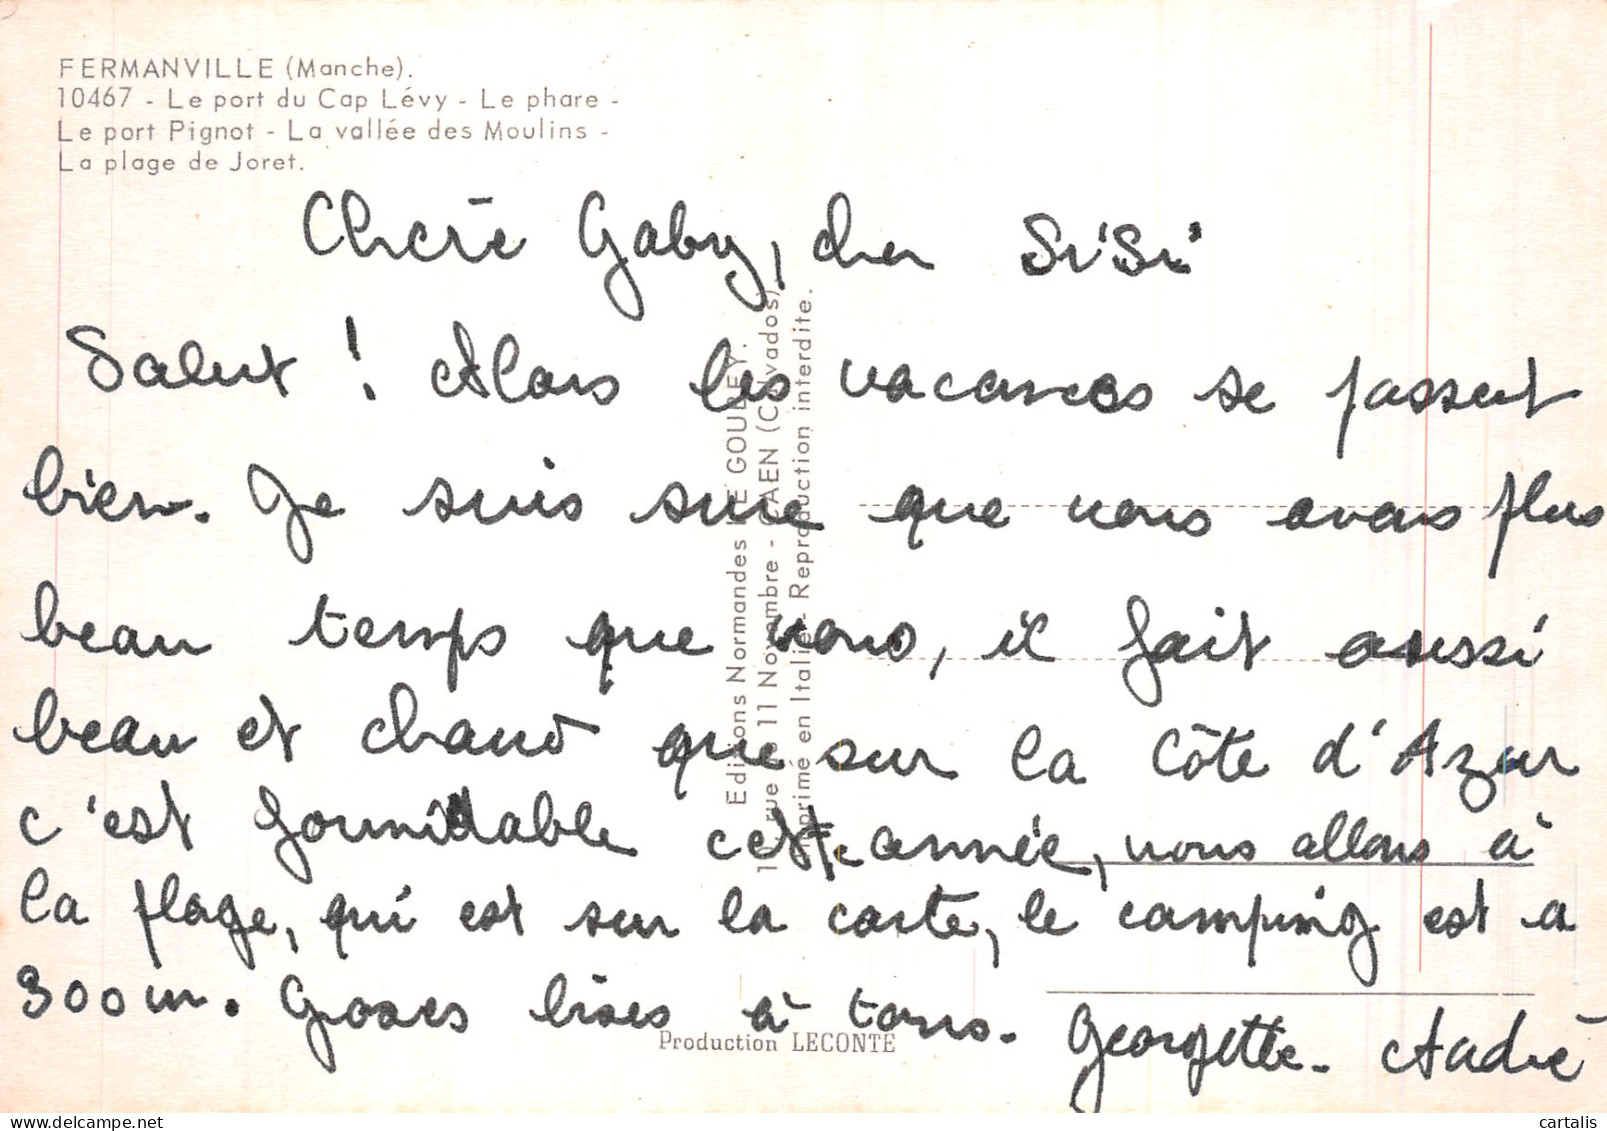 FERMANVILLE (Manche).
10467 - Le port du Cap Lévy - Le phare -
Le port Pignot - La vallée des Moulins -
La plage de Joret.
Chère Gaby, cher SiSi
Salut ! Alors les vacances se passent
bien. Je suis sure que nous avons plus
beau temps que vous, il fait aussi
beau et chaud que sur la Côte d'Azur
c'est formidable cette année, nous allons à
la plage, qui est sur la carte, le camping est a
300 m. Grosses bises à tous. Georgette. André
Editions Normandes LE GOUBEY.
rue du 11 Novembre - CAEN (Calvados)
Imprimé en Italie - Reproduction interdite.
Production LECONTE
cartalis